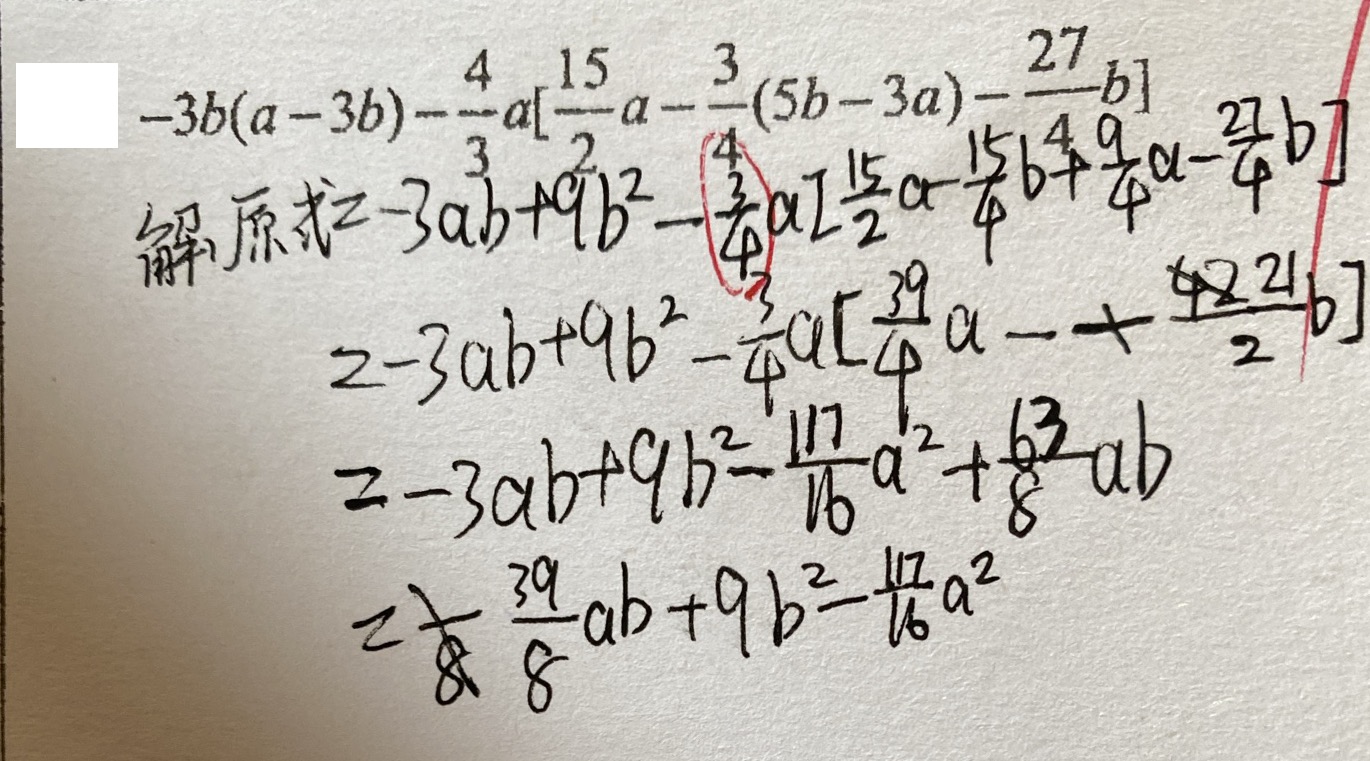 -3b(a-3b)-\frac{4}{3}a[\frac{15}{2}a-\frac{3}{4}(5b-3a)-\frac{27}{4}b]
解,原式=-3ab+9b²-\frac{3}{4}a[\frac{15}{2}a-\frac{15}{4}b+\frac{9}{4}a-\frac{27}{4}b]
=-3ab+9b²-\frac{3}{4}a[\frac{39}{4}a-\frac{21}{2}b]
=-3ab+9b²-\frac{117}{16}a²+\frac{63}{8}ab
=\frac{39}{8}ab+9b²-\frac{117}{16}a²